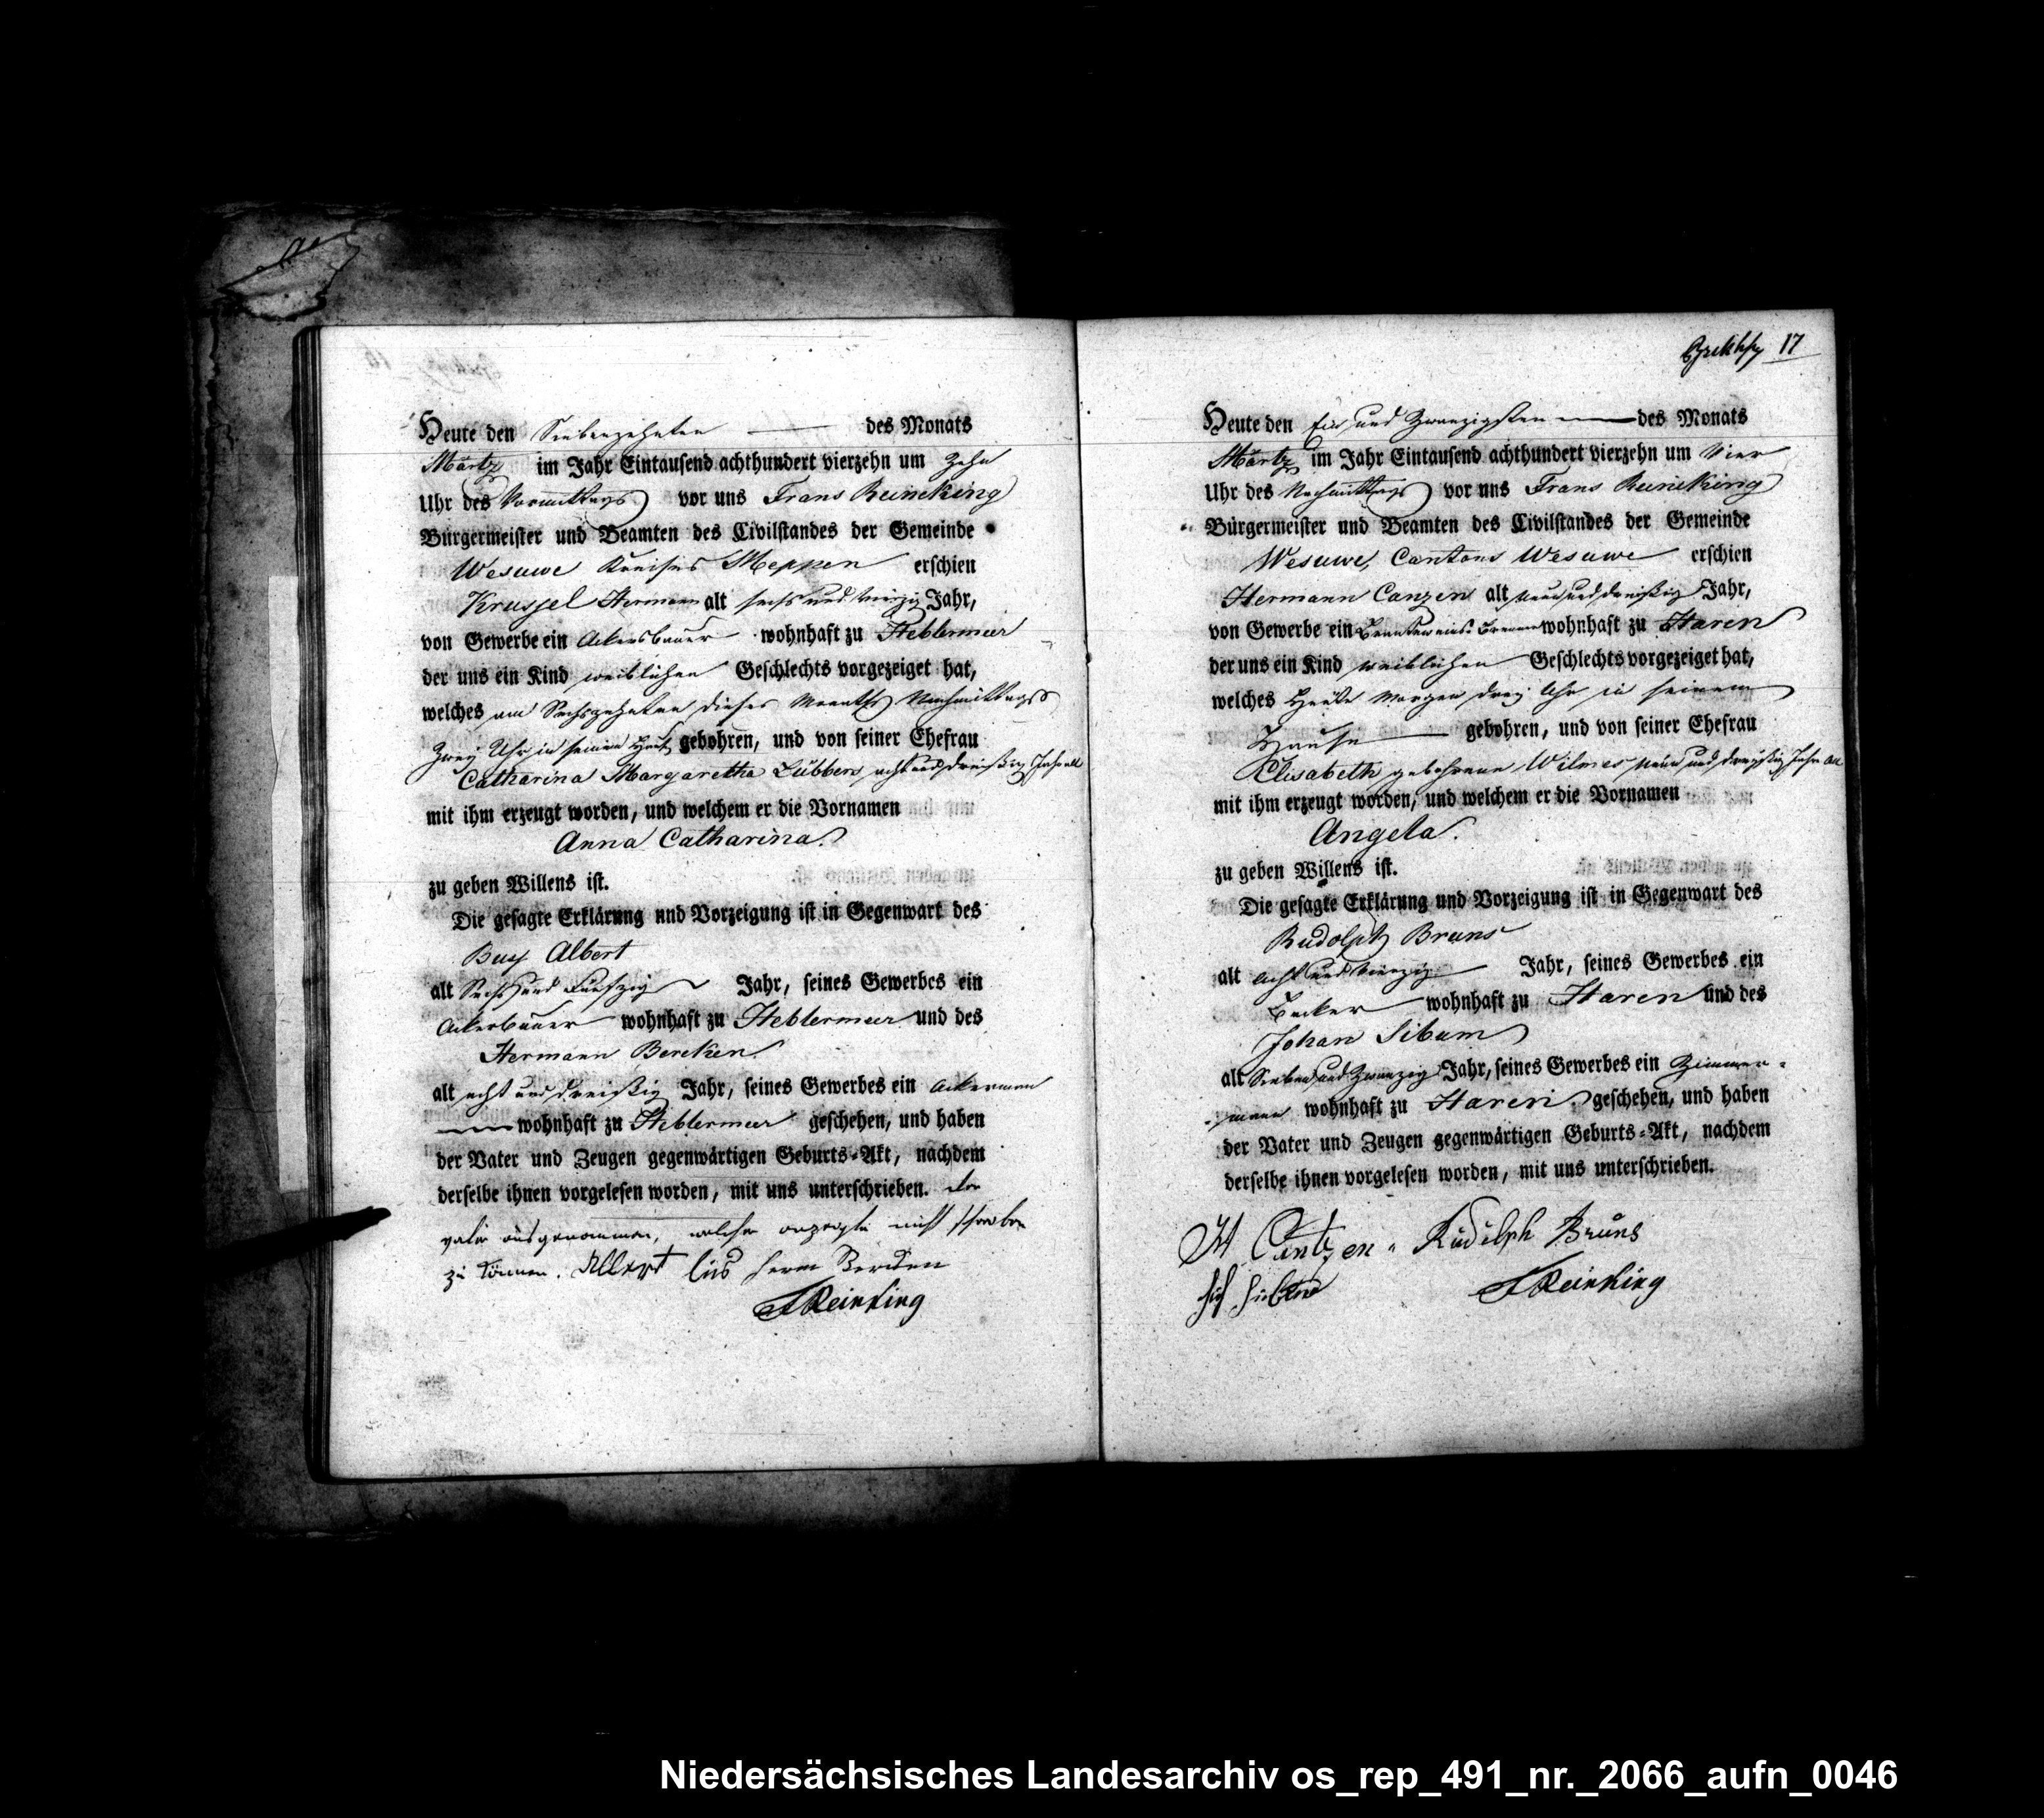 Heute den Siebenzehnten des Monats
Märtz im Jahr Eintausend achthundert vierzehn um Zehn
Uhr des Vormittags vor uns Frans Reineking
Bürgermeister und Beamten des Civilstandes der Gemeinde
Wesuwe Kreises Meppen erschien
Krussel Hermann alt sechs und vierzig Jahr,
von Gewerbe ein Ackersbauer wohnhaft zu Heblermeer
der uns ein Kind weiblichen Geschlechts vorgezeiget hat,
welches am Sechszehnten dieses Monaths Nachmittags
Zwey Uhr in seinem Haus gebohren, und von seiner Ehefrau
Catharina Margaretha Lübbers acht und dreißig Jahr alt
mit ihm erzeugt worden, und welchem er die Vornamen
Anna Catharina.
zu geben Willens ist.
Die gesagte Erklärung und Vorzeigung ist in Gegenwart des
Albert
alt Sechs und Fünfzig Jahr, seines Gewerbes ein
Ackerbauer wohnhaft zu Heblermeer und des
Hermann Bercken
alt acht und dreißig Jahr, seines Gewerbes ein Ackermann
wohnhaft zu Heblermeer geschehen, und haben
der Vater und Zeugen gegenwärtigen Geburts-Akt, nachdem
derselbe ihnen vorgelesen worden, mit uns unterschrieben. der
vater ausgenommen, welcher anzeigte nicht schreiben
zu können. Albert herm Bercken
F Reinking
17
Heute den Ein und Zwanzigsten des Monats
Märtz im Jahr Eintausend achthundert vierzehn um Vier
Uhr des Nachmittags vor uns Frans Reineking
Bürgermeister und Beamten des Civilstandes der Gemeinde
Wesuwe, Cantons Wesuwe erschien
Hermann Canzen alt neun und dreißig Jahr,
von Gewerbe ein Branteweins Brenner wohnhaft zu Haren
der uns ein Kind weiblichen Geschlechts vorgezeiget hat,
welches Heute Morgen drey Uhr in seinem
Hause gebohren, und von seiner Ehefrau
Elisabeth gebohrene Wilmes neun und dreißig Jahr alt
mit ihm erzeugt worden, und welchem er die Vornamen
Angela.
zu geben Willens ist.
Die gesagte Erklärung und Vorzeigung ist in Gegenwart des
Rudolph Bruns
alt acht und vierzig Jahr, seines Gewerbes ein
Becker wohnhaft zu Haren und des
Johan Sibum
alt Sieben und Zwanzig Jahr, seines Gewerbes ein Zimmer-
mann wohnhaft zu Haren geschehen, und haben
der Vater und Zeugen gegenwärtigen Geburts-Akt, nachdem
derselbe ihnen vorgelesen worden, mit uns unterschrieben.
H Cantzen Rudolph Bruns
F Reinking
Niedersächsisches Landesarchiv os_rep_491_nr._2066_aufn_0046